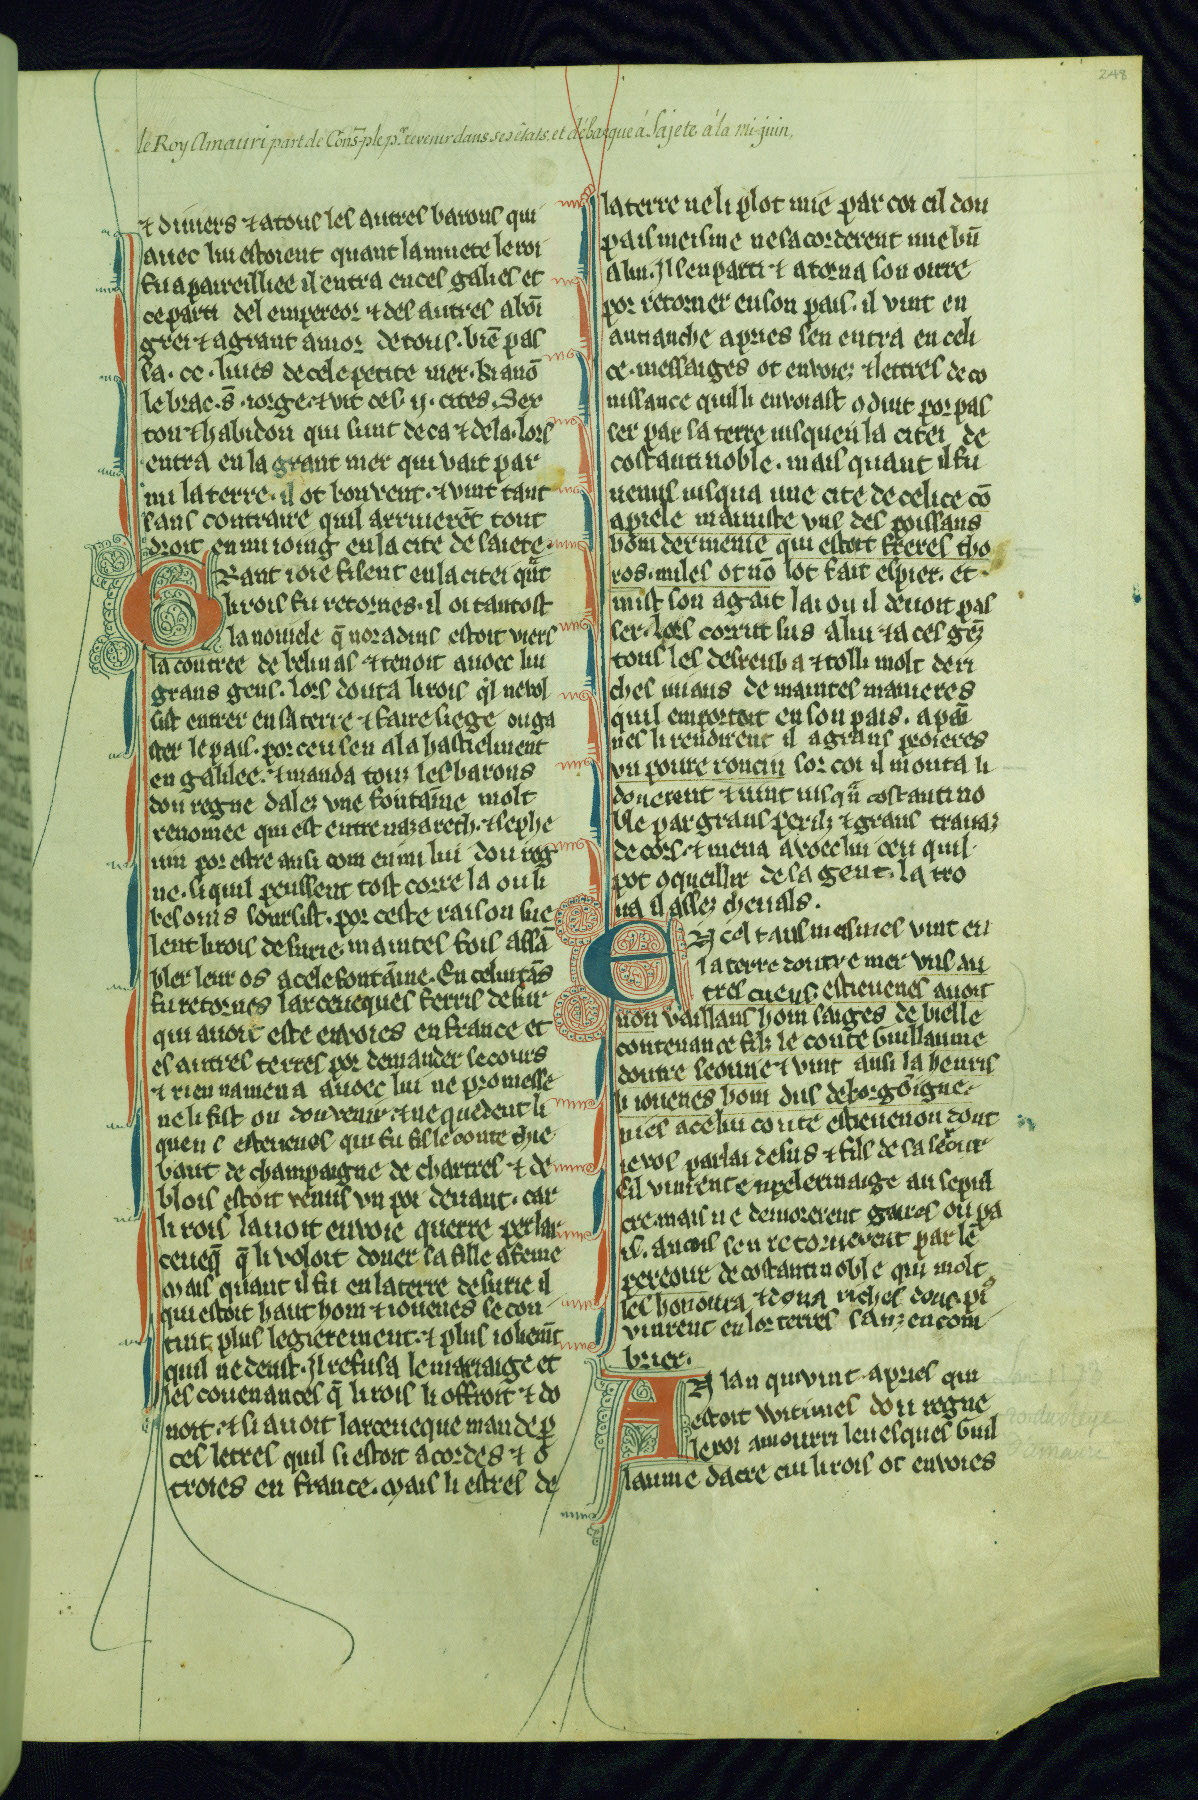 248
le Roy Amauri part de Cons-ple pr revenir dans ses états, et débarque á Sajete á la mi-juin,
⁊ diuers ⁊ a tous les autres barons qui
auec lui estoient quant la muete le roi
fu apareilliee il entra en ces galies et
ce parti del empereor ⁊ des autres a bon̄
grei ⁊ a grant amor de tous. bn̄e pas
sa .cc. liues de cele petite mer.
le brac .s̄. iorge ⁊ vit ces .ij. cites. Sex
ton ⁊ habidon qui sunt de ca ⁊ de la. lors
entra en la grant mer qui vait par
mi la terre. il ot bon vent. ⁊ vint tant
sans contraire quil arriuerēt tout
droit en mi ioing en la cite de saiete.
Grant ioie fisent en la citei qu̅t
li rois fu retornes. il oi tantost
la nouele q̄ noradins estoit viers
la contree de belinas ⁊ tenoit auoec lui
grans gens. lors douta li rois ql ne vol
sist entrer en sa terre ⁊ faire siege ou ga
ster le pais. por ceu sen ala hastielment
en galilee. ⁊ manda touz les barons
dou regne dalez vne fontaine molt
renomee qui est entre nazareth. ⁊ sephe
um por estre ausi com en mi lui dou reg
ne. si quil peussent tost corre la ou li
besoins soursist. por ceste raison sue
lent li rois de surie. maintes fois assā
bler leur os a cele fontaine. En celui tās
fu retornes larceueques ferris de sur
qui auoit este enuoies en france et
es autres terres por demander secours
⁊ rien namena auoec lui ne promesse
ne li fist on dou venir. ⁊ ne quedent li
quens estieuenes qui fu fils le conte thie
baut de champaigne de chartres ⁊ de
blois estoit venus vn poi deuant. car
li rois lauoit enuoie querre per lar
ceueq̄ q̄ li voloit doner sa fille a feme
Mais quant il fu en la terre de surie il
qui estoit haut hom ⁊ iouenes se con
tint plus legierement. ⁊ plus iolieniīt
quil ne deust. Il refusa le mariaige et
les couenances q̄ li rois li offroit ⁊ do
noit. ⁊ si auoit larceueque mande p̄
ces letres quil si estoit acordes ⁊ o
troies en france. Mais li estres de
la terre ne li plot mie par coi cil dou
pais meisme ne sacorderent mie bn̄
a lui. Il sen parti ⁊ atorna son oirre
por retorner en son pais. il vint en
antianche apries sen entra en celi
ce. messaiges ot enuoiez ⁊ lettres de co
nissance quil li enuoiast oduit por pas
ser par sa terre iusquen la citei de
costantinoble. mais quant il fu
venus iusqua une cite de celice cō
apiele mamiste vns des poissans
hom dermenie qui estoit freres tho
ros. miles ot nō lot fait espier. et
mist son agait lai ou il deuoit pas
ser. lors corrut sus a lui ⁊ a ces gēz
tous les desreuba ⁊ tolli molt de ri
ches muans de maintes manieres
quil emportoit en son pais. a pai
nes li rendirent il a grans proieres
vn poure roncin sor coi il monta li
donerent ⁊ vint iusqu̅ costantino
ble par grans perilz ⁊ grans trauaz
de cors. ⁊ mena auoec lui ceu quil
pot oqueillir de sa gent. la tro
ua il assez cheuals.
En cel tans meismes vint en
la terre doutre mer vns au
tres cuens. estieuenes auoit
non vaillans hom saiges de bielle
contenance filz le conte Guillaume
doutre seonne ⁊ vint ausi la henris
li iouenes hom dus de borgoigne.
nies a celui conte estieuenon dont
ie vos parlai desus ⁊ fils de sa serour
Cil vinrent en pelerinaige au sepul
cre. mais ne demorerent gaires ou pa
is. ancois sen retornerent par lē
pereour de costantinoble qui molt
les honoura ⁊ dona riches dons. pi̊
vinrent en lor terres sanz encom
brier.
A lan qui vint apries qui
estoit witimes dou regne
le roi amourri leuesques Guil
laume dacre cui li rois ot enuoies